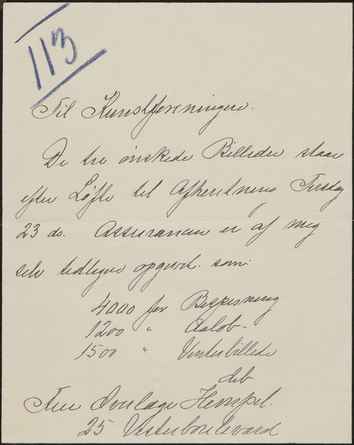 113
Til Kunstforeningen.
De tre ønskede Billeder staar
efter Løfte til Afhentning Tirsdag
23 ds. Assurancen er af mig
selv tidligere opgivet som
4000 for Bespisning
1200 " Aalob.
1500 " Vinterbillede
Hempel.
25 Vesterboulevard